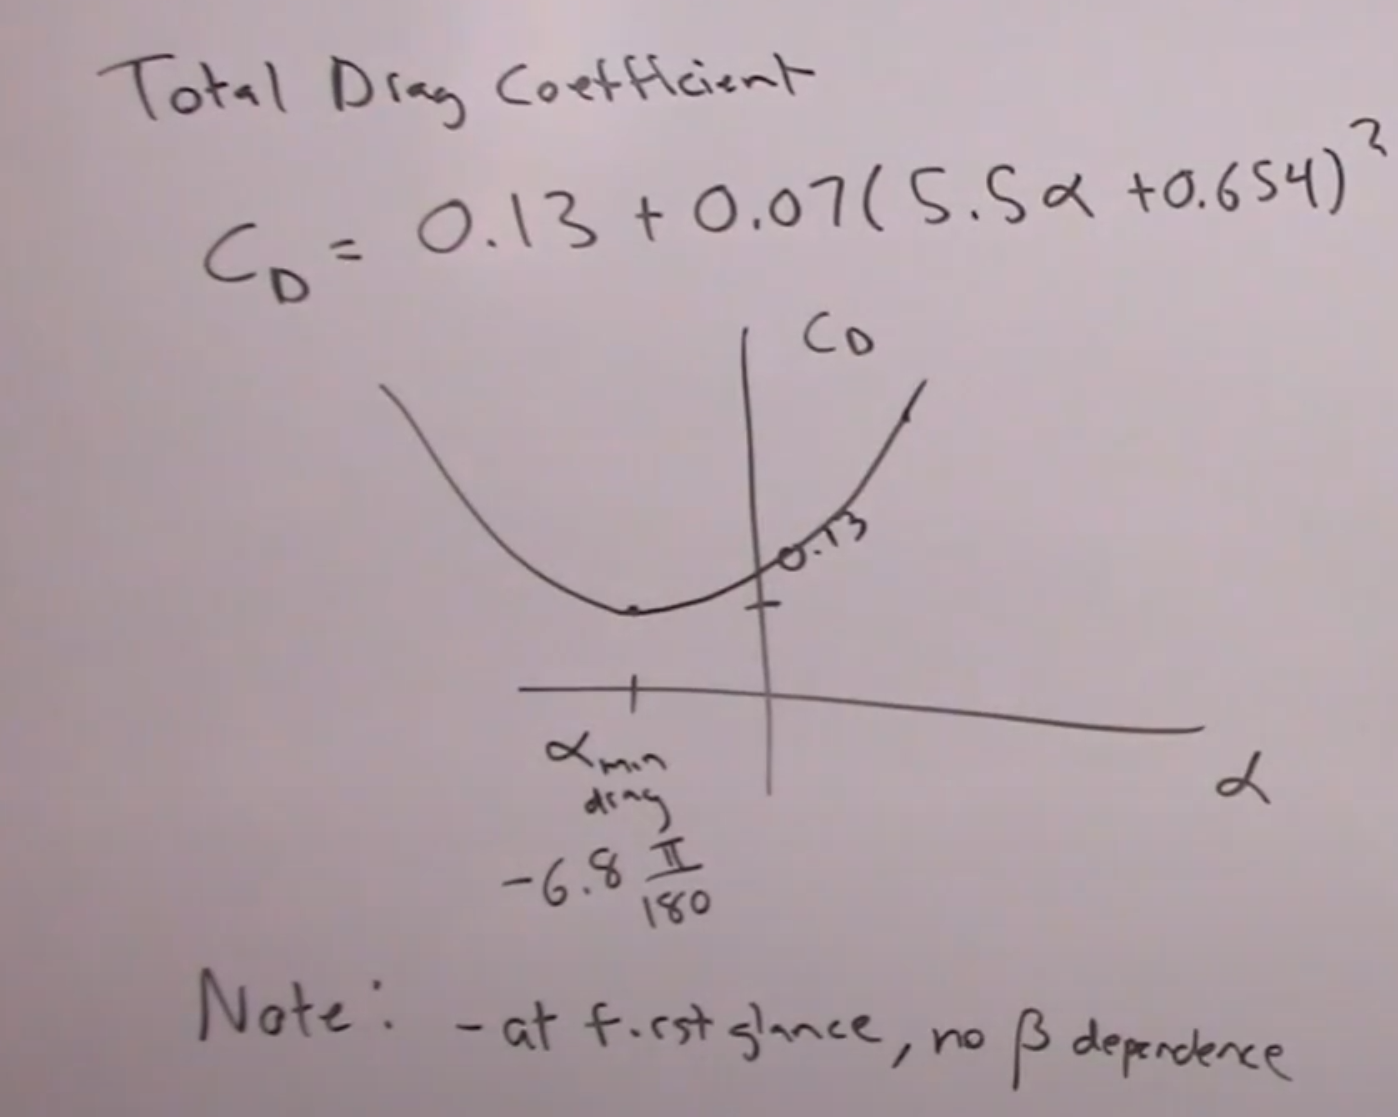 Total Drag Coefficient
C_D = 0.13 + 0.07(5.5α + 0.654)²
C_D
0.13
α min
drag
α
-6.8 π/180
Note: - at first glance, no β dependence